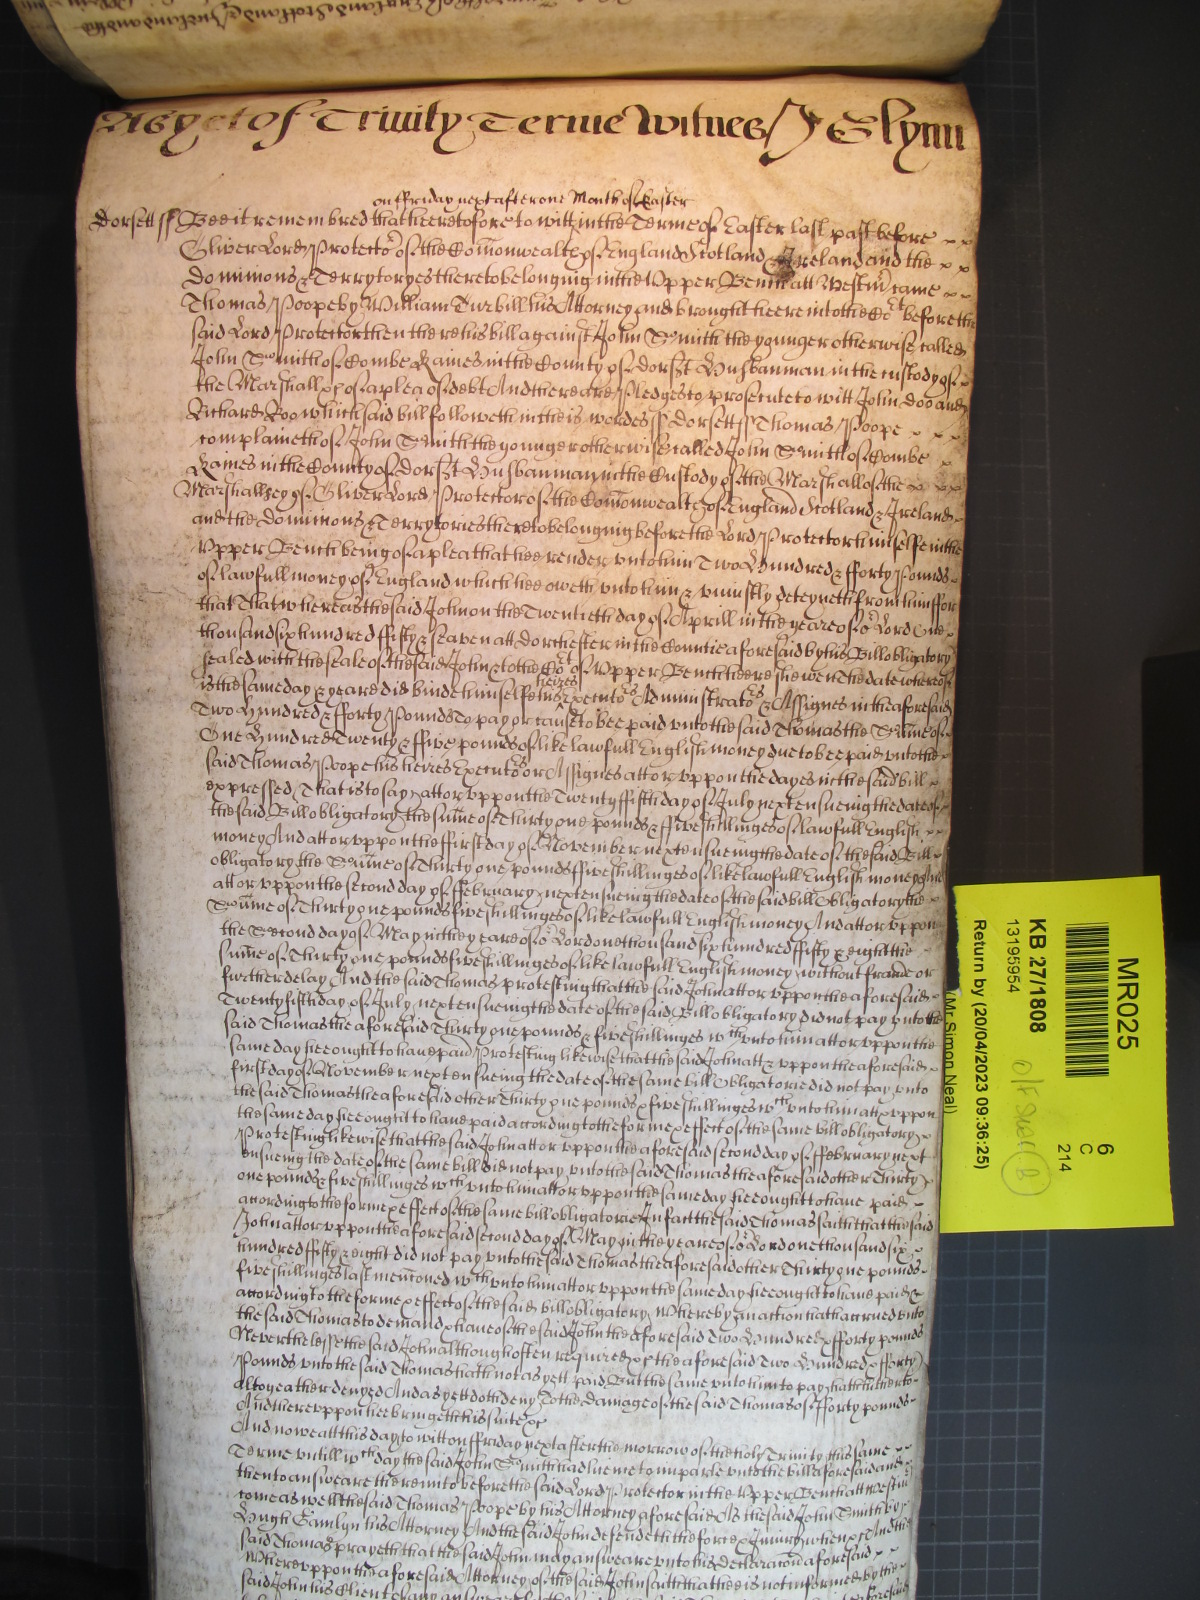 As yet of Trinity Terme Witnes J Glynn
on ffriday next after one Month of Easter
Dorsett ss Bee it remembred that heeretofore to witt in the Terme of Easter last past before
Oliver Lord Protector of the Com̃onwealth of England Scotland & Ireland and the
Dominions & Terrytoryes thereto belonging in the Vpper Bench att Westm̃ came
Thomas Poope by William Turbill his Attorney and brought heere into the Cot before the
said Lord Protector then there his bill against John Smith the younger otherwise called
John Smith of Combe Kaines in the County of Dorst Husbanman in the custody of
the Marshall &c of a plea of debt And there are Pledges to prosecute to witt John Doo and
Richard Roo which said bill followeth in theis wordes ss Dorsett ss Thomas Poope
complaineth of John Smith the younger otherwise called John Smith of Combe
Kaines in the County of Dorst Husbanman in the Custody of the Marshall of the
Marshallsey of Oliver Lord Protector of the Com̃onwealth of England Scotland & Ireland
and the Dominions & Terrytories thereto belonging before the Lord Protector himselfe in the
Vpper Bench being of a plea that hee render vnto him Two Hundred & fforty Pounds
of lawfull money of England which hee oweth vnto him & vniustly deteyneth from him ffor
that That whereas the said John on the Twentieth day of Aprill in the yeare of or Lord One
thousand six hundred ffifty & seaven att Dorchester in the Countie aforesaid by his Bill obligatory
sealed with the seale of the said John & to the Cot of Vpper Bench heere shewen the date whereof
heires
is the same day & yeare did binde himselfe his Executors Administrators & Assignes in the aforesaid
Two Hundred & fforty Pounds To pay or cause to bee paid vnto the said Thomas the Sum̃e of
One Hundred Twenty & ffive pounds of like lawfull English money due to bee paid vnto the
said Thomas Poope his heires Executors or Assignes att or vppon the dayes in the said bill
expressed That is to say att or vppon the Twenty ffifth day of July next ensueing the date of
the said Bill obligatory the sum̃e of Thirty one pounds & ffive shillinges of lawfull English
money And att or vppon the ffirst day of November next ensueing the date of the said Bill
obligatory the Sum̃e of Thirty one pounds ffive shillinges of like lawfull English money And
att or vppon the second day of ffebruary next ensueing the date of the said bill Obligatory the
Sum̃e of Thirty one pounds five shillinges of like lawfull English money And att or vppon
the Second day of May in the yeare of or Lord one thousand six hundred ffifty & eight the
sum̃e of Thirty one pounds five shillinges of like lawfull English money without fraude or
further delay And the said Thomas protesting that the said John att or vppon the aforesaid
Twenty fifth day of July next ensueing the date of the said Bill obligatory did not pay vnto the
said Thomas the aforesaid Thirty one pounds & five shillinges wch vnto him att or vppon the
same day hee ought to have paid Protesting likewise that the said John att & vppon the aforesaid
first day of November next ensueing the date of the same bill Obligatorie did not pay vnto
the said Thomas the aforesaid other Thirty one pounds & five shillinges wch vnto him att & vppon
the same day hee ought to have paid according to the forme & effect of the same bill obligatory
Protesting likewise that the said John att or vppon the aforesaid second day of ffebruary next
ensueing the date of the same bill did not pay vnto the said Thomas the aforesaid other Thirty
one pounds & five shillinges wch vnto him att or vppon the same day hee ought to have paid
according to the forme & effect of the same bill obligatorie In fact the said Thomas saith that the said
John att or vppon the aforesaid second day of May in the yeare of or Lord one thousand six
hundred ffifty & eight did not pay vnto the said Thomas the aforesaid other Thirty one pounds
five shillinges last menc̃oned wch vnto him att or vppon the same day hee ought to have paid
according to the forme & effect of the said bill obligatory Whereby an action hath accrued vnto
the said Thomas to demand & have of the said John the aforesaid Two Hundred & fforty pounds
Neverthelesse the said John although often required &c the aforesaid Two Hundred & fforty
Pounds vnto the said Thomas hath not as yett paid But the same vnto him to pay hath hitherto
altogeather denyed And as yett doth deny To the Damage of the said Thomas of fforty pounds
And therevppon hee bringeth his suite &c
And now att this day to witt on ffriday next after the morrow of the holy Trinity this same
Terme vntill wch day the said John Smith had lieve to imparle vnto the bill aforesaid and
then to answeare there vnto before the said Lord Protector in the Vpper Bench att Westm̃
come as well the said Thomas Poope by his Attorney aforesaid As the said John Smith by
Hugh Gamlyn his Attorney And the said John defendeth the force & Iniury when &c And the
said Thomas prayeth that the said John may answeare vnto his declarac̃on aforesaid
Wherevppon the aforesaid Attorney of the said John saith that hee is not informed by the
said John his Client of any answeare
MR025
6
C
214
KB 27/1808
13195954
Return by (20/04/2023 09:36:25)
(Mr Simon Neal)